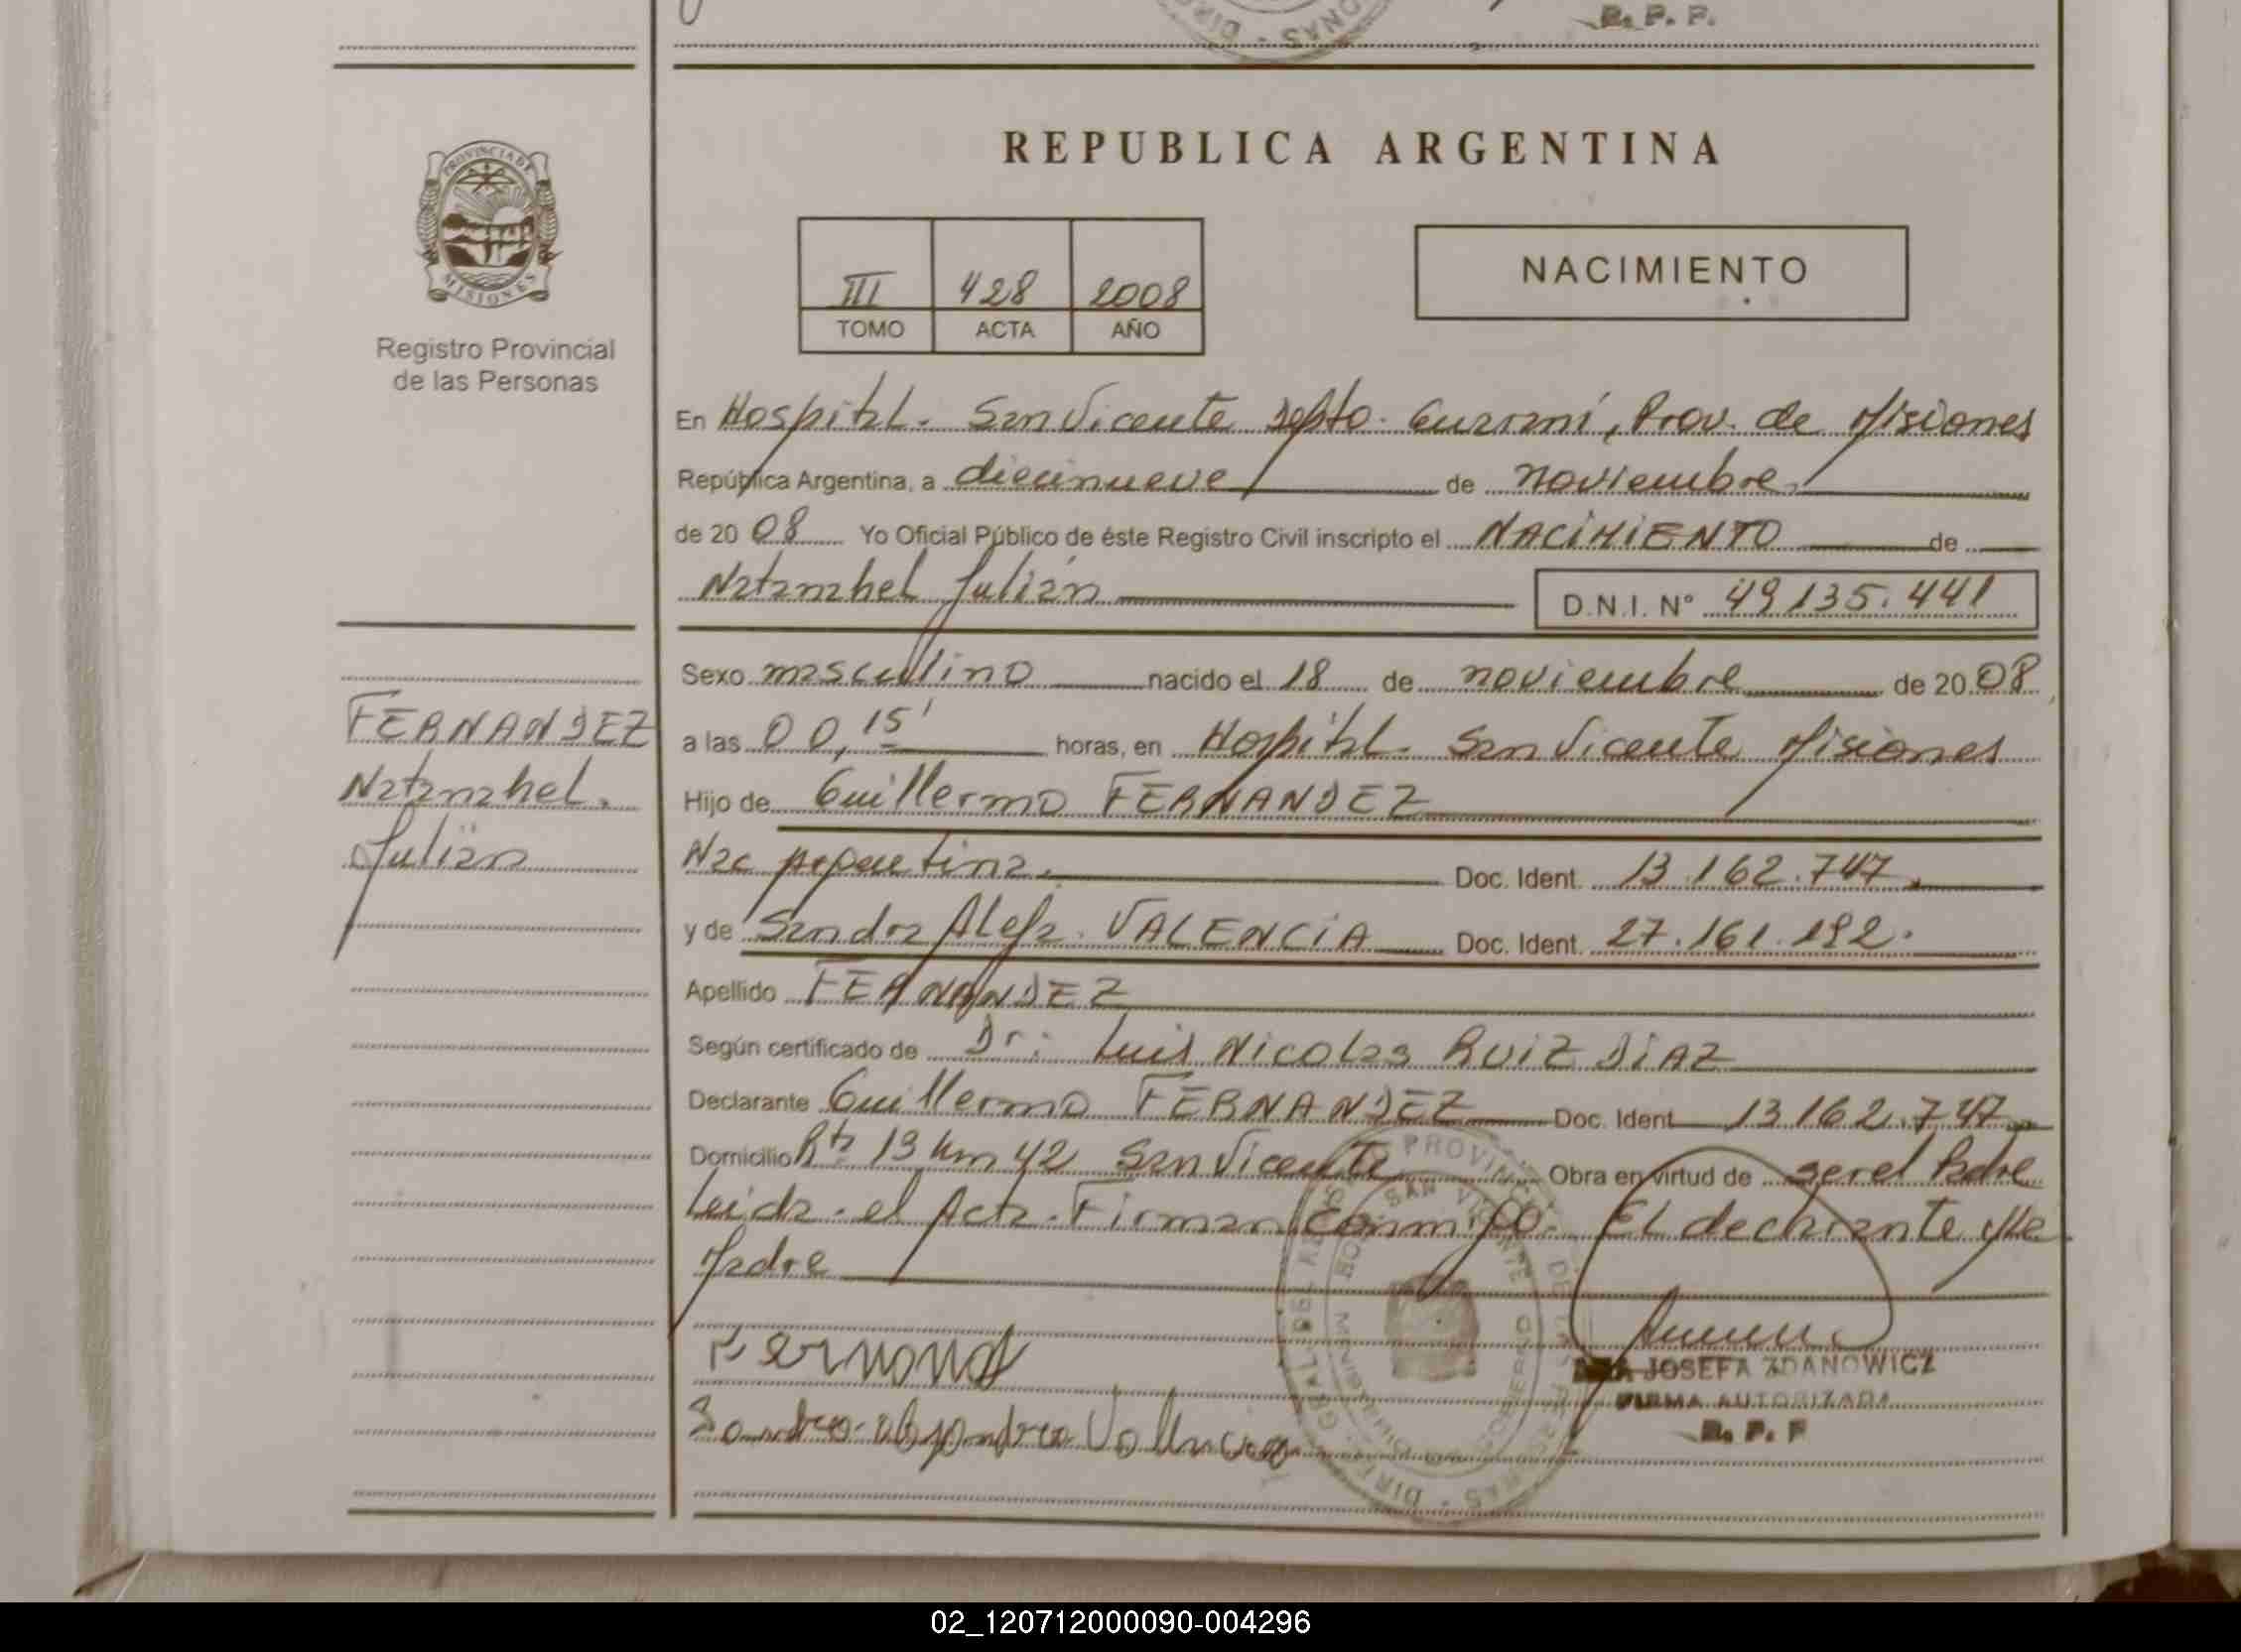 R. P. P.
PROVINCIA DE
MISIONES
Registro Provincial
de las Personas
REPUBLICA ARGENTINA
III 428 2008
TOMO ACTA AÑO
NACIMIENTO
En Hospital. San Vicente Depto. Guaraní, Prov. de Misiones
República Argentina, a diecinueve de noviembre.
de 20 08 Yo Oficial Público de éste Registro Civil inscripto el NACIMIENTO de
Natanahel Julián D.N.I. N° 49135.441
Sexo masculino nacido el 18 de noviembre de 20 08
FERNANDEZ
Natanahel.
Julián
a las 00,15' horas, en Hospital. San Vicente Misiones
Hijo de Guillermo FERNANDEZ
Nac Argentina. Doc. Ident. 13.162.747.
y de Sandra Alej2. VALENCIA Doc. Ident. 27.161.192.
Apellido FERNANDEZ
Según certificado de Dr: Luis Nicolas RUIZ DIAZ
Declarante Guillermo FERNANDEZ Doc. Ident 13162.747
Domicilio Rta 13 Km 42 San Vicente Obra en virtud de ser el Padre
Leida el Acta. Firman Conmigo. El declarante y la
Madre
Sandra alejandra Valencia
JOSEFA ZDANOWICZ
FIRMA AUTORIZADA
R. P. P
02_120712000090-004296